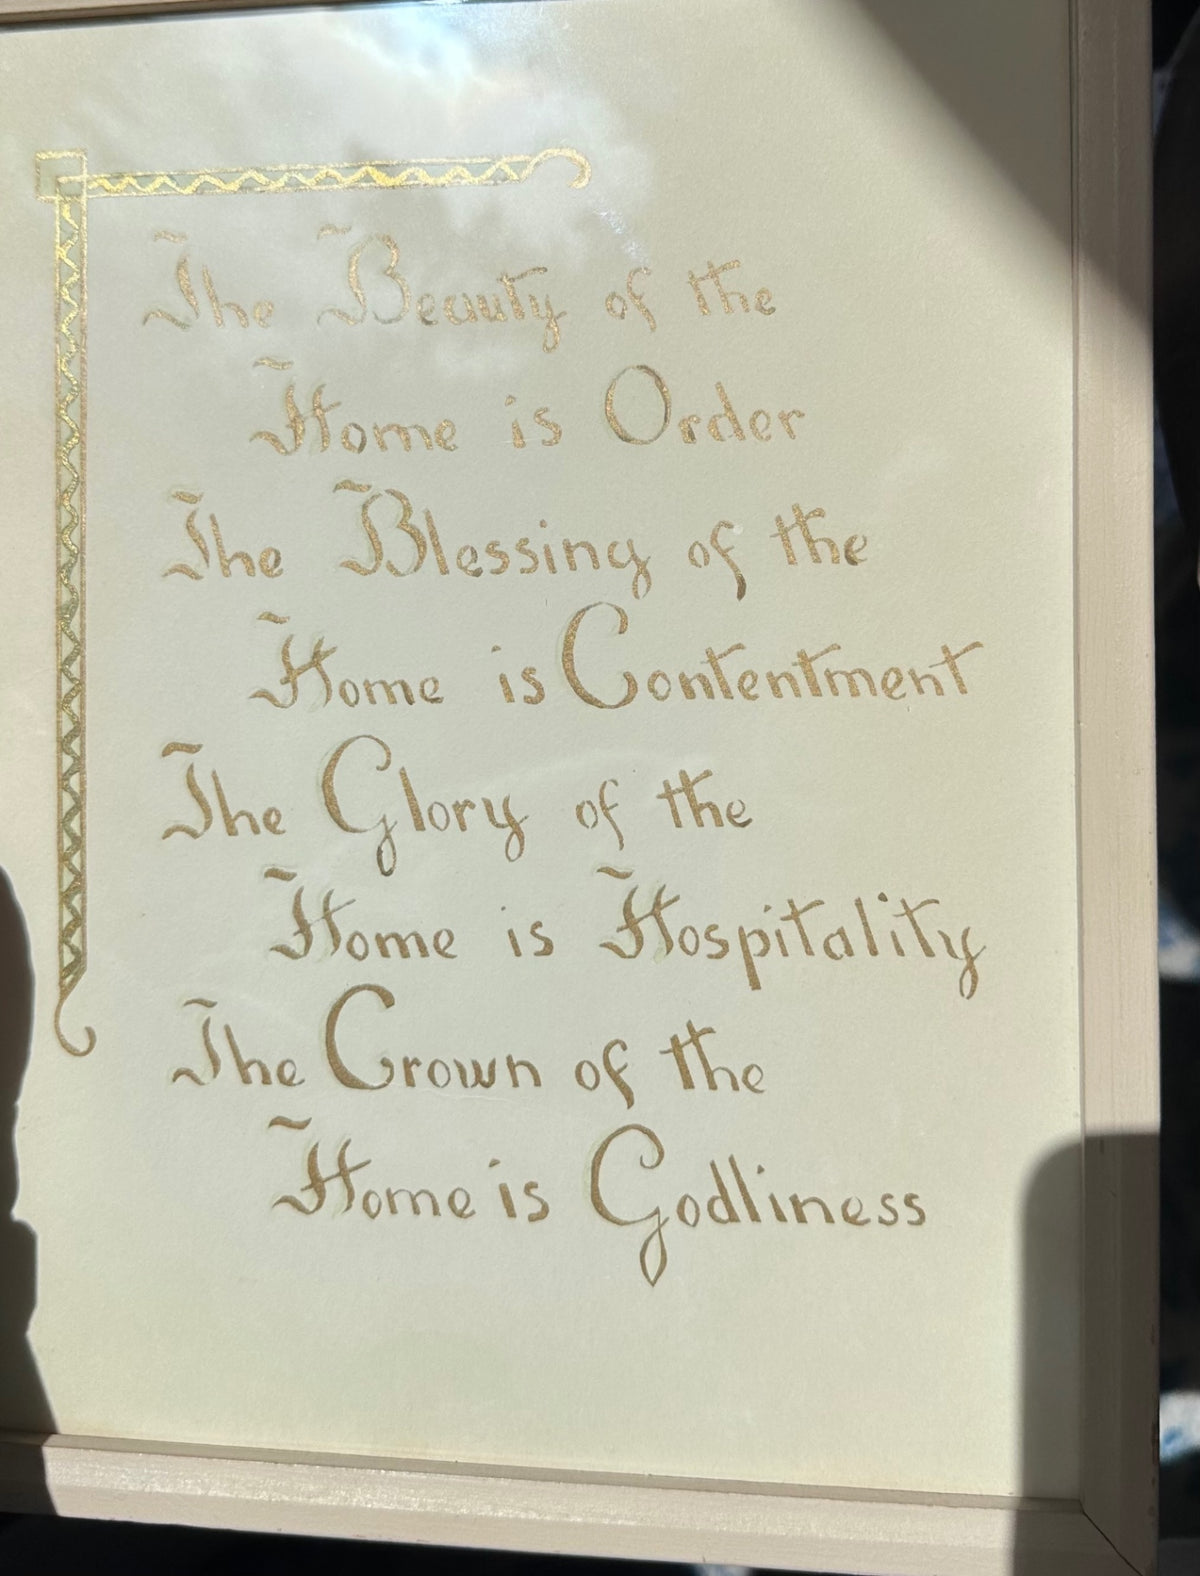 The Beauty of the
Home is Order
The Blessing of the
Home is Contentment
The Glory of the
Home is Hospitality
The Crown of the
Home is Godliness